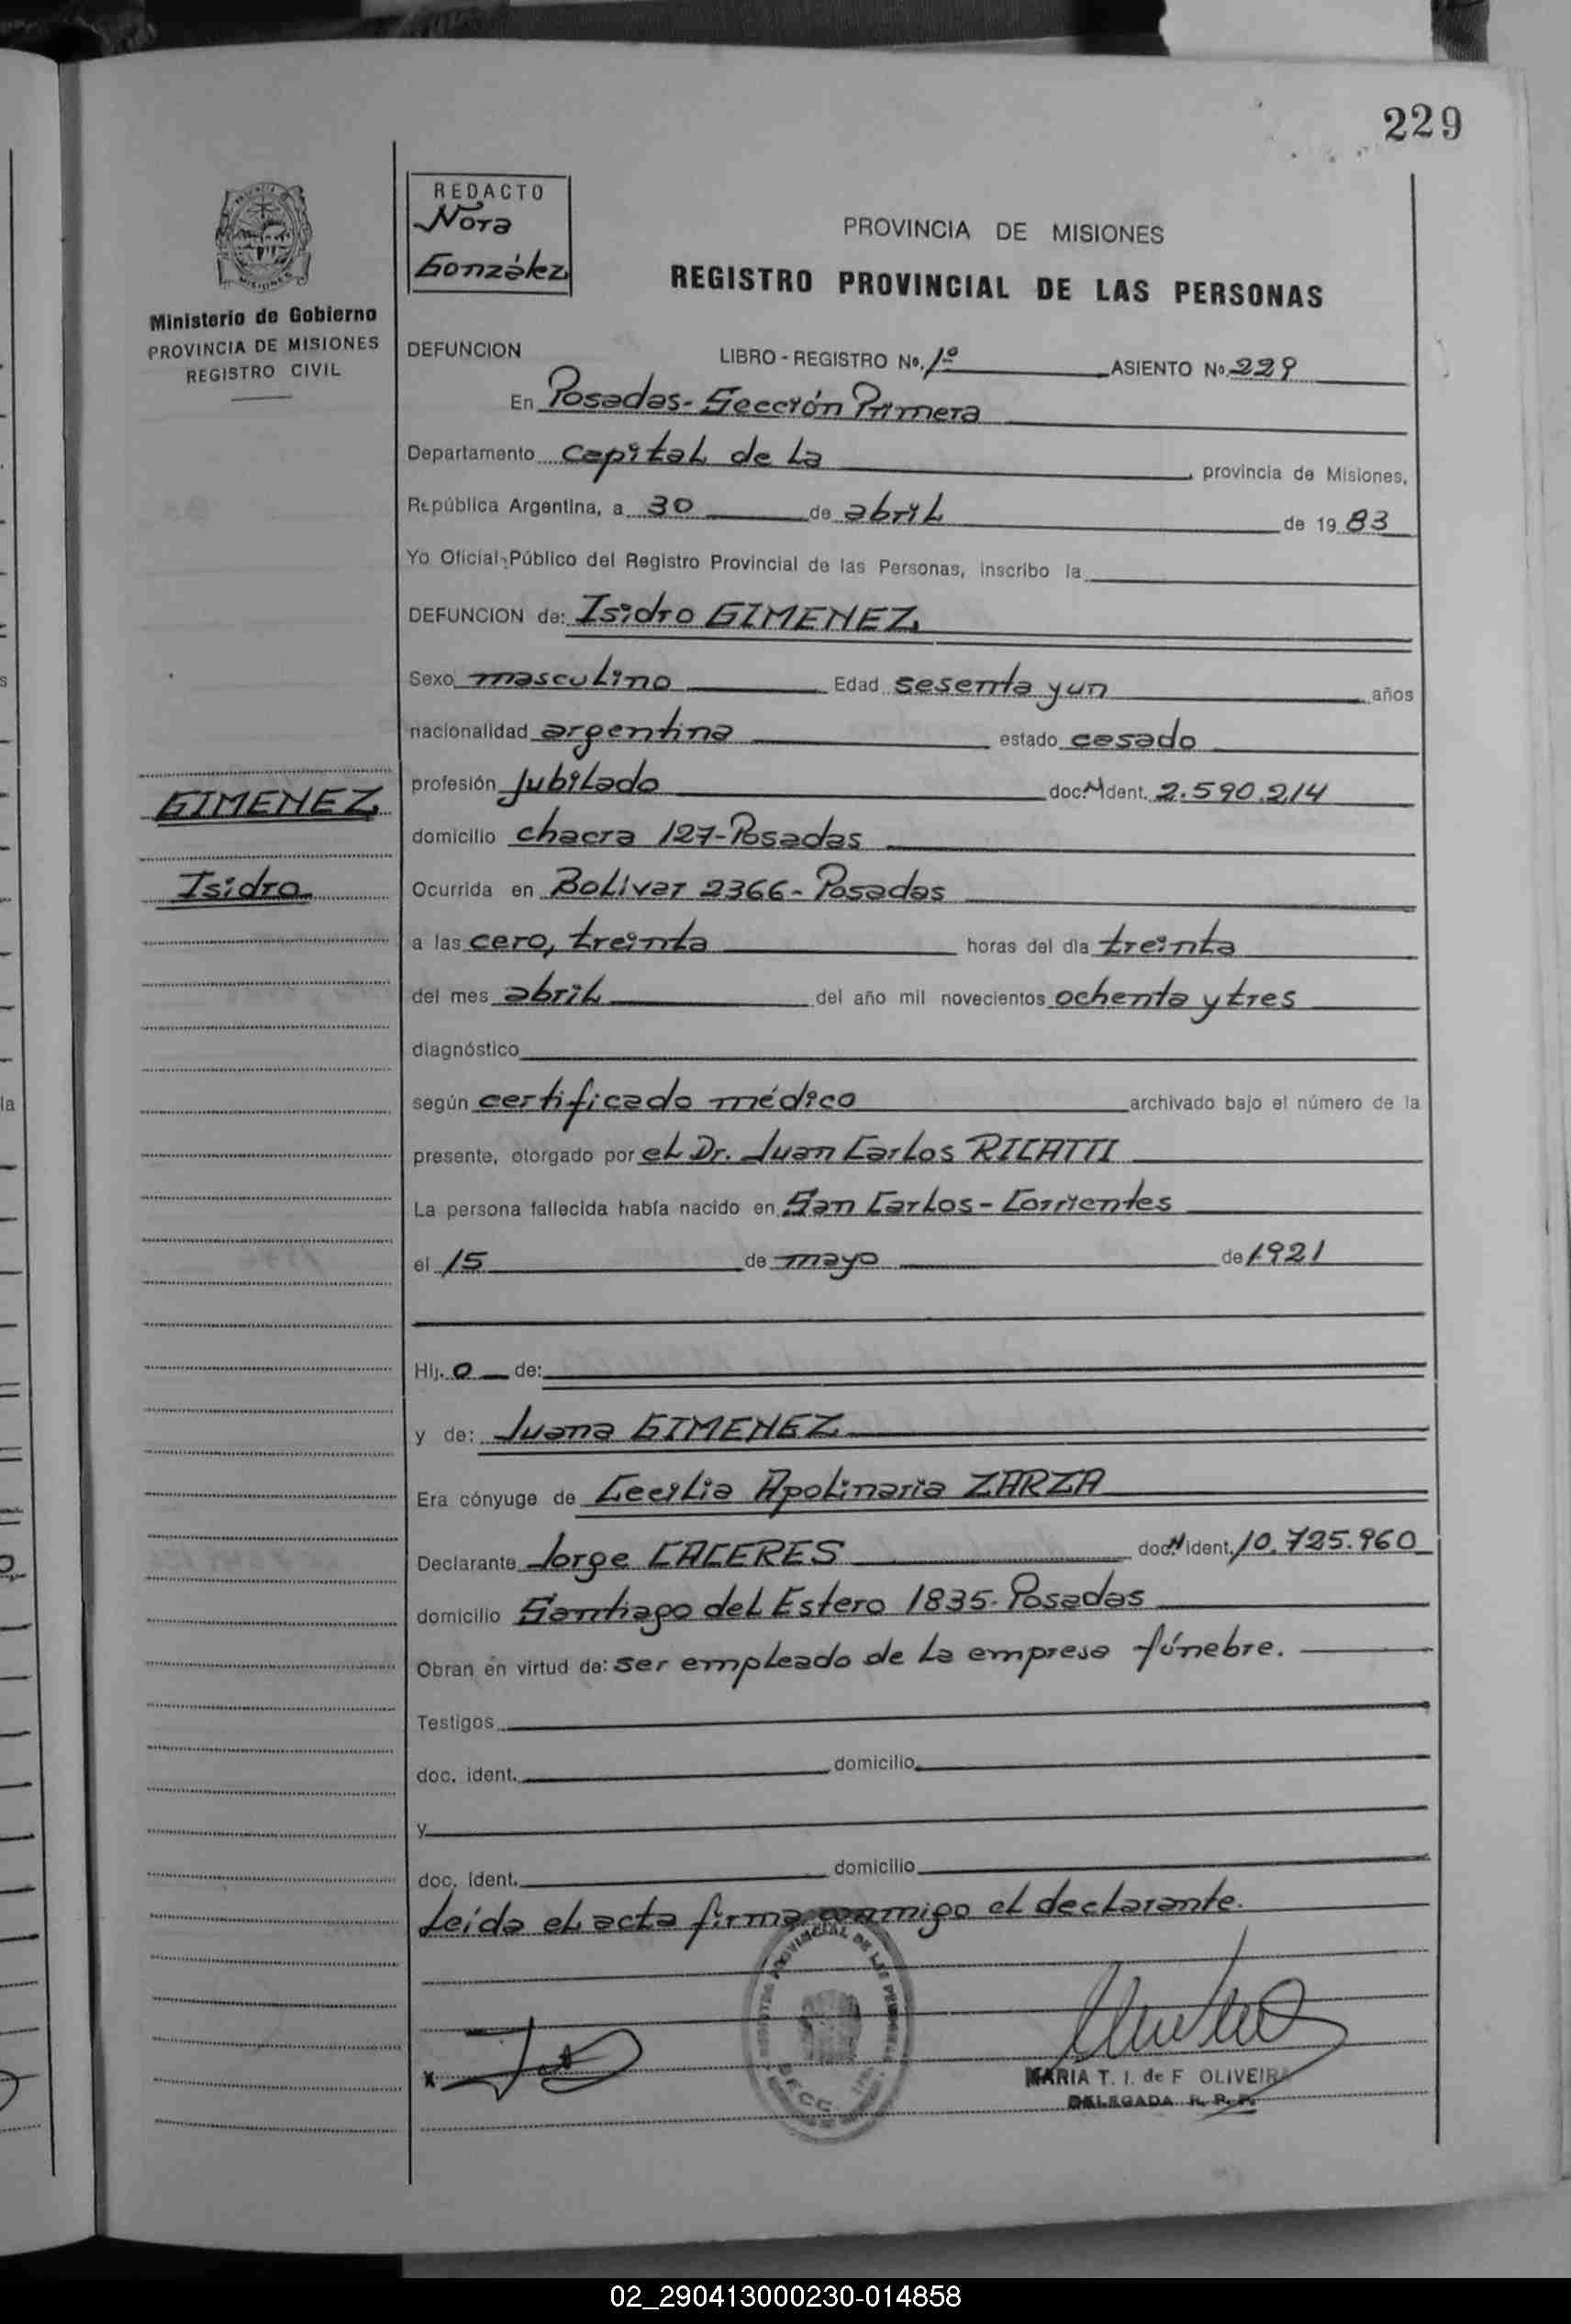 229
REDACTO
Nora
González
PROVINCIA DE MISIONES
REGISTRO PROVINCIAL DE LAS PERSONAS
Ministerio de Gobierno
PROVINCIA DE MISIONES
REGISTRO CIVIL
DEFUNCION LIBRO - REGISTRO No. 1º ASIENTO No. 229
En Posadas - Sección Primera
Departamento Capital de La provincia de Misiones,
República Argentina, a 30 de abril de 19 83
Yo Oficial Público del Registro Provincial de las Personas, inscribo la
DEFUNCION de: Isidro GIMENEZ
Sexo masculino Edad sesenta y un años
nacionalidad argentina estado casado
profesión Jubilado doc. M ident. 2.590.214
domicilio chacra 127 - Posadas
GIMENEZ
Isidro
Ocurrida en Bolivar 2366 - Posadas
a las cero, treinta horas del día treinta
del mes abril del año mil novecientos ochenta y tres
diagnóstico
según certificado médico archivado bajo el número de la
presente, otorgado por el Dr. Juan Carlos RICATTI
La persona fallecida había nacido en San Carlos - Corrientes
el 15 de mayo de 1921
Hij. o de:
y de: Juana GIMENEZ
Era cónyuge de Cecilia Apolinaria ZARZA
Declarante Jorge CACERES doc. N ident. 10.725.960
domicilio Santiago del Estero 1835 - Posadas
Obran en virtud de: ser empleado de la empresa fúnebre.
Testigos
doc. ident. domicilio
y
doc. ident. domicilio
Leída el acta firma conmigo el declarante.
x
MARIA T. I. de F OLIVEIRA
DELEGADA R. P. P.
02_290413000230-014858